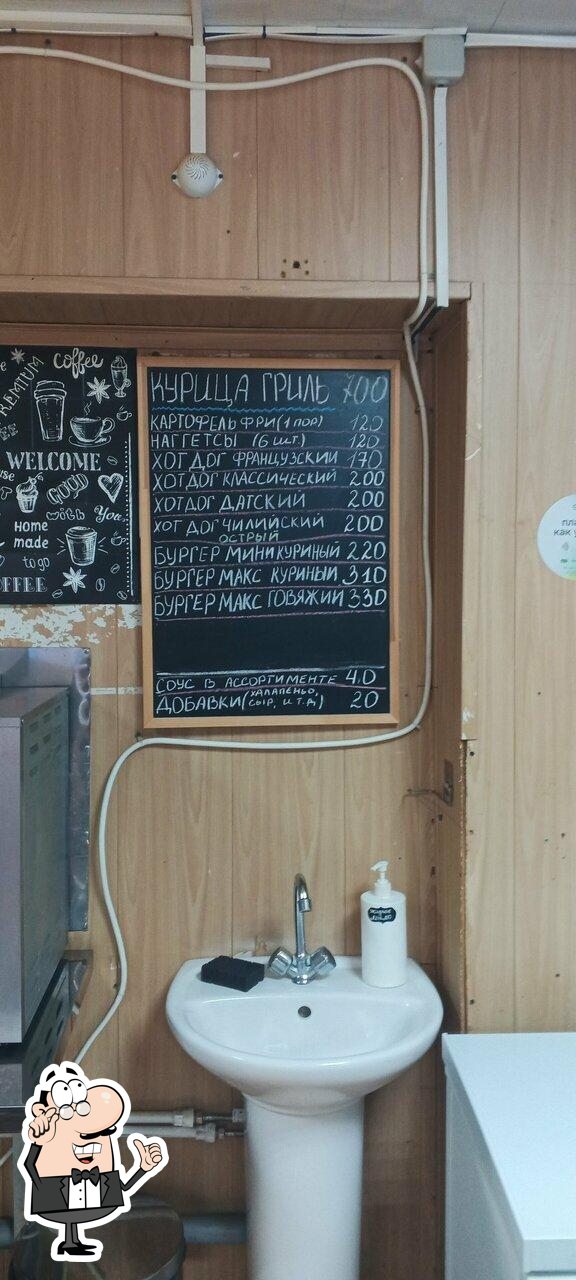 coffee
PREMIUM
WELCOME
Good
with You
Home
made
to go
COFFEE
КУРИЦА ГРИЛЬ 700
КАРТОФЕЛЬ ФРИ (1 ПОР) 120
НАГГЕТСЫ (6 ШТ.) 120
ХОТ ДОГ ФРАНЦУЗСКИЙ 170
ХОТ ДОГ КЛАССИЧЕСКИЙ 200
ХОТ ДОГ ДАТСКИЙ 200
ХОТ ДОГ ЧИЛИЙСКИЙ 200
ОСТРЫЙ
БУРГЕР МИНИ КУРИНЫЙ 220
БУРГЕР МАКС КУРИНЫЙ 310
БУРГЕР МАКС ГОВЯЖИЙ 330
СОУС В АССОРТИМЕНТЕ 40
ДОБАВКИ (ХАЛАПЕНЬО, СЫР, И Т.Д) 20
как